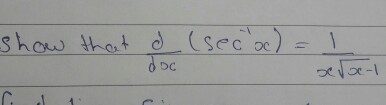 show that d/dx (sec⁻¹x) = 1/(x√(x-1))